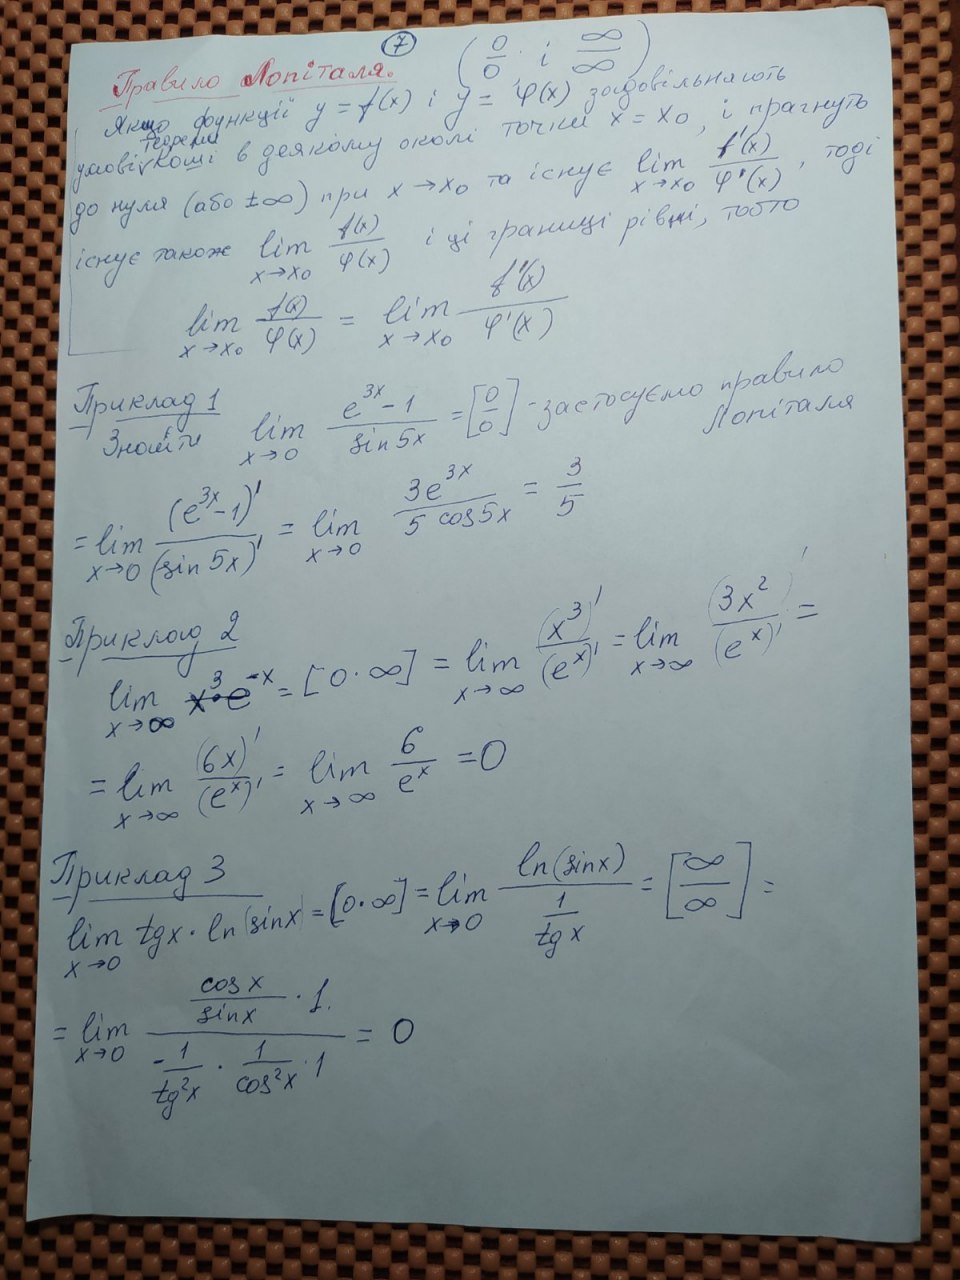 7
Правило Лопіталя. (0/0 і ∞/∞)
Якщо функції y = f(x) і y = φ(x) задовільняють
умові теореми Коші в деякому околі точки x = x₀, і прагнуть
до нуля (або ±∞) при x→x₀ та існує lim x→x₀ f'(x)/φ'(x), тоді
існує також lim x→x₀ f(x)/φ(x) і ці границі рівні, тобто
lim x→x₀ f(x)/φ(x) = lim x→x₀ f'(x)/φ'(x)
Приклад 1
Знайти lim x→0 (e^(3x) - 1)/(sin 5x) = [0/0] - застосуємо правило
Лопіталя
= lim x→0 (e^(3x) - 1)'/(sin 5x)' = lim x→0 3e^(3x)/(5 cos 5x) = 3/5
Приклад 2
lim x→∞ x³·e^(-x) = [0·∞] = lim x→∞ (x³)'/(e^x)' = lim x→∞ (3x²)'/(e^x)' =
= lim x→∞ (6x)'/(e^x)' = lim x→∞ 6/e^x = 0
Приклад 3
lim x→0 tgx · ln(sinx) = [0·∞] = lim x→0 ln(sinx)/(1/tgx) = [∞/∞] =
= lim x→0 (cosx/sinx · 1)/(-1/tg²x · 1/cos²x · 1) = 0